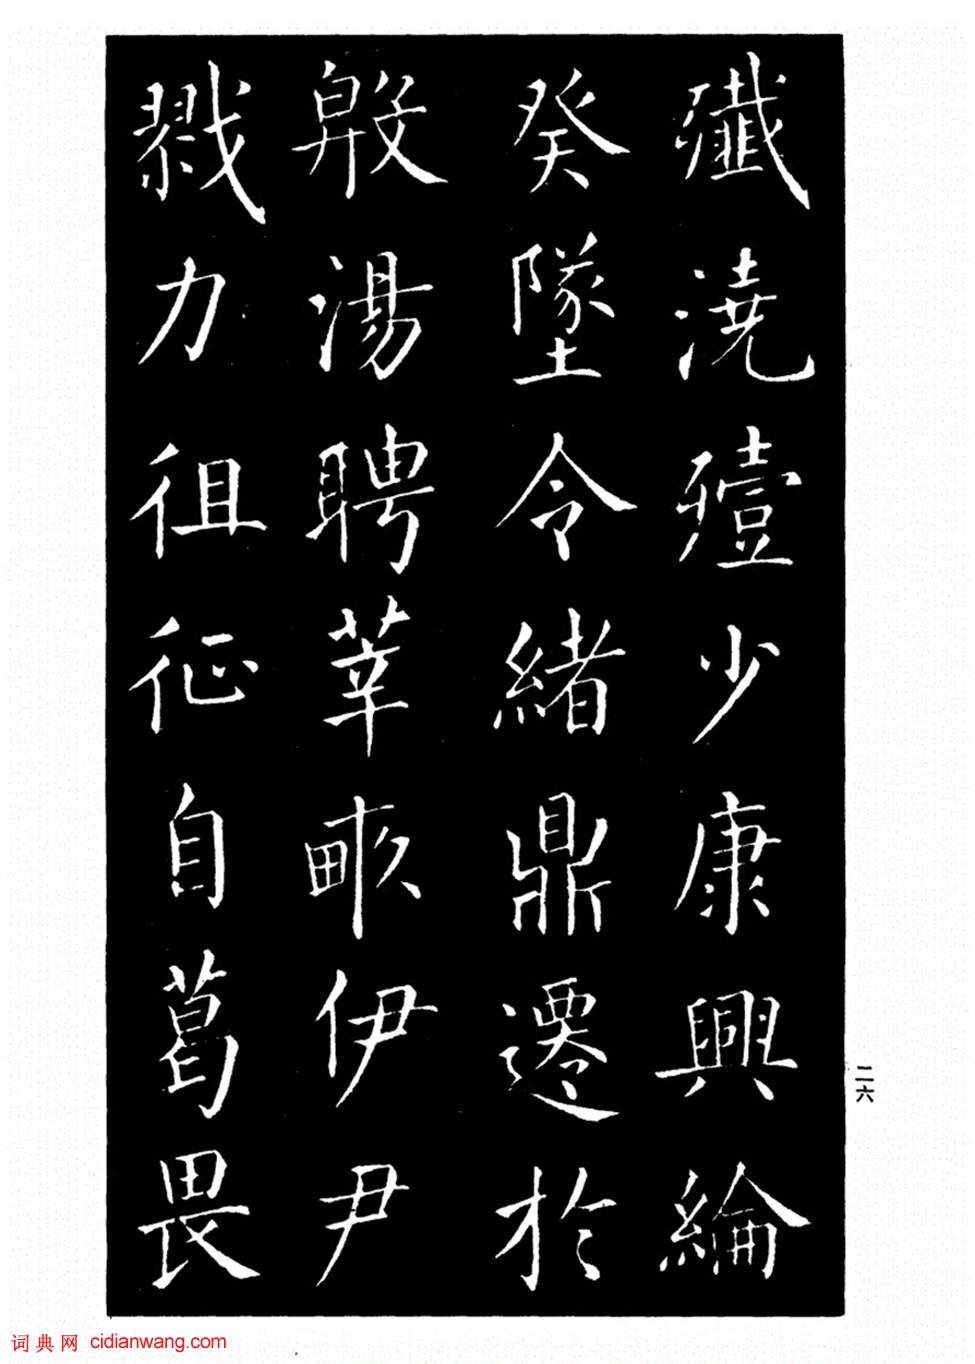 殲澆殪少康興綸
癸墜令緒鼎遷於
殷湯聘莘畎伊尹
戮力徂征自葛畏
二六
词典网 cidianwang.com